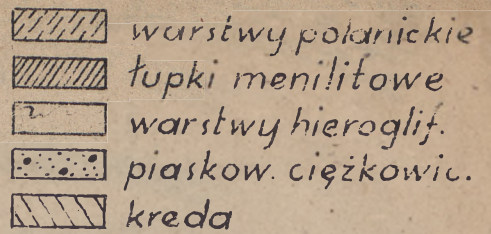 warstwy polanickie
łupki menilitowe
warstwy hieroglif.
piaskow. ciężkowic.
kreda